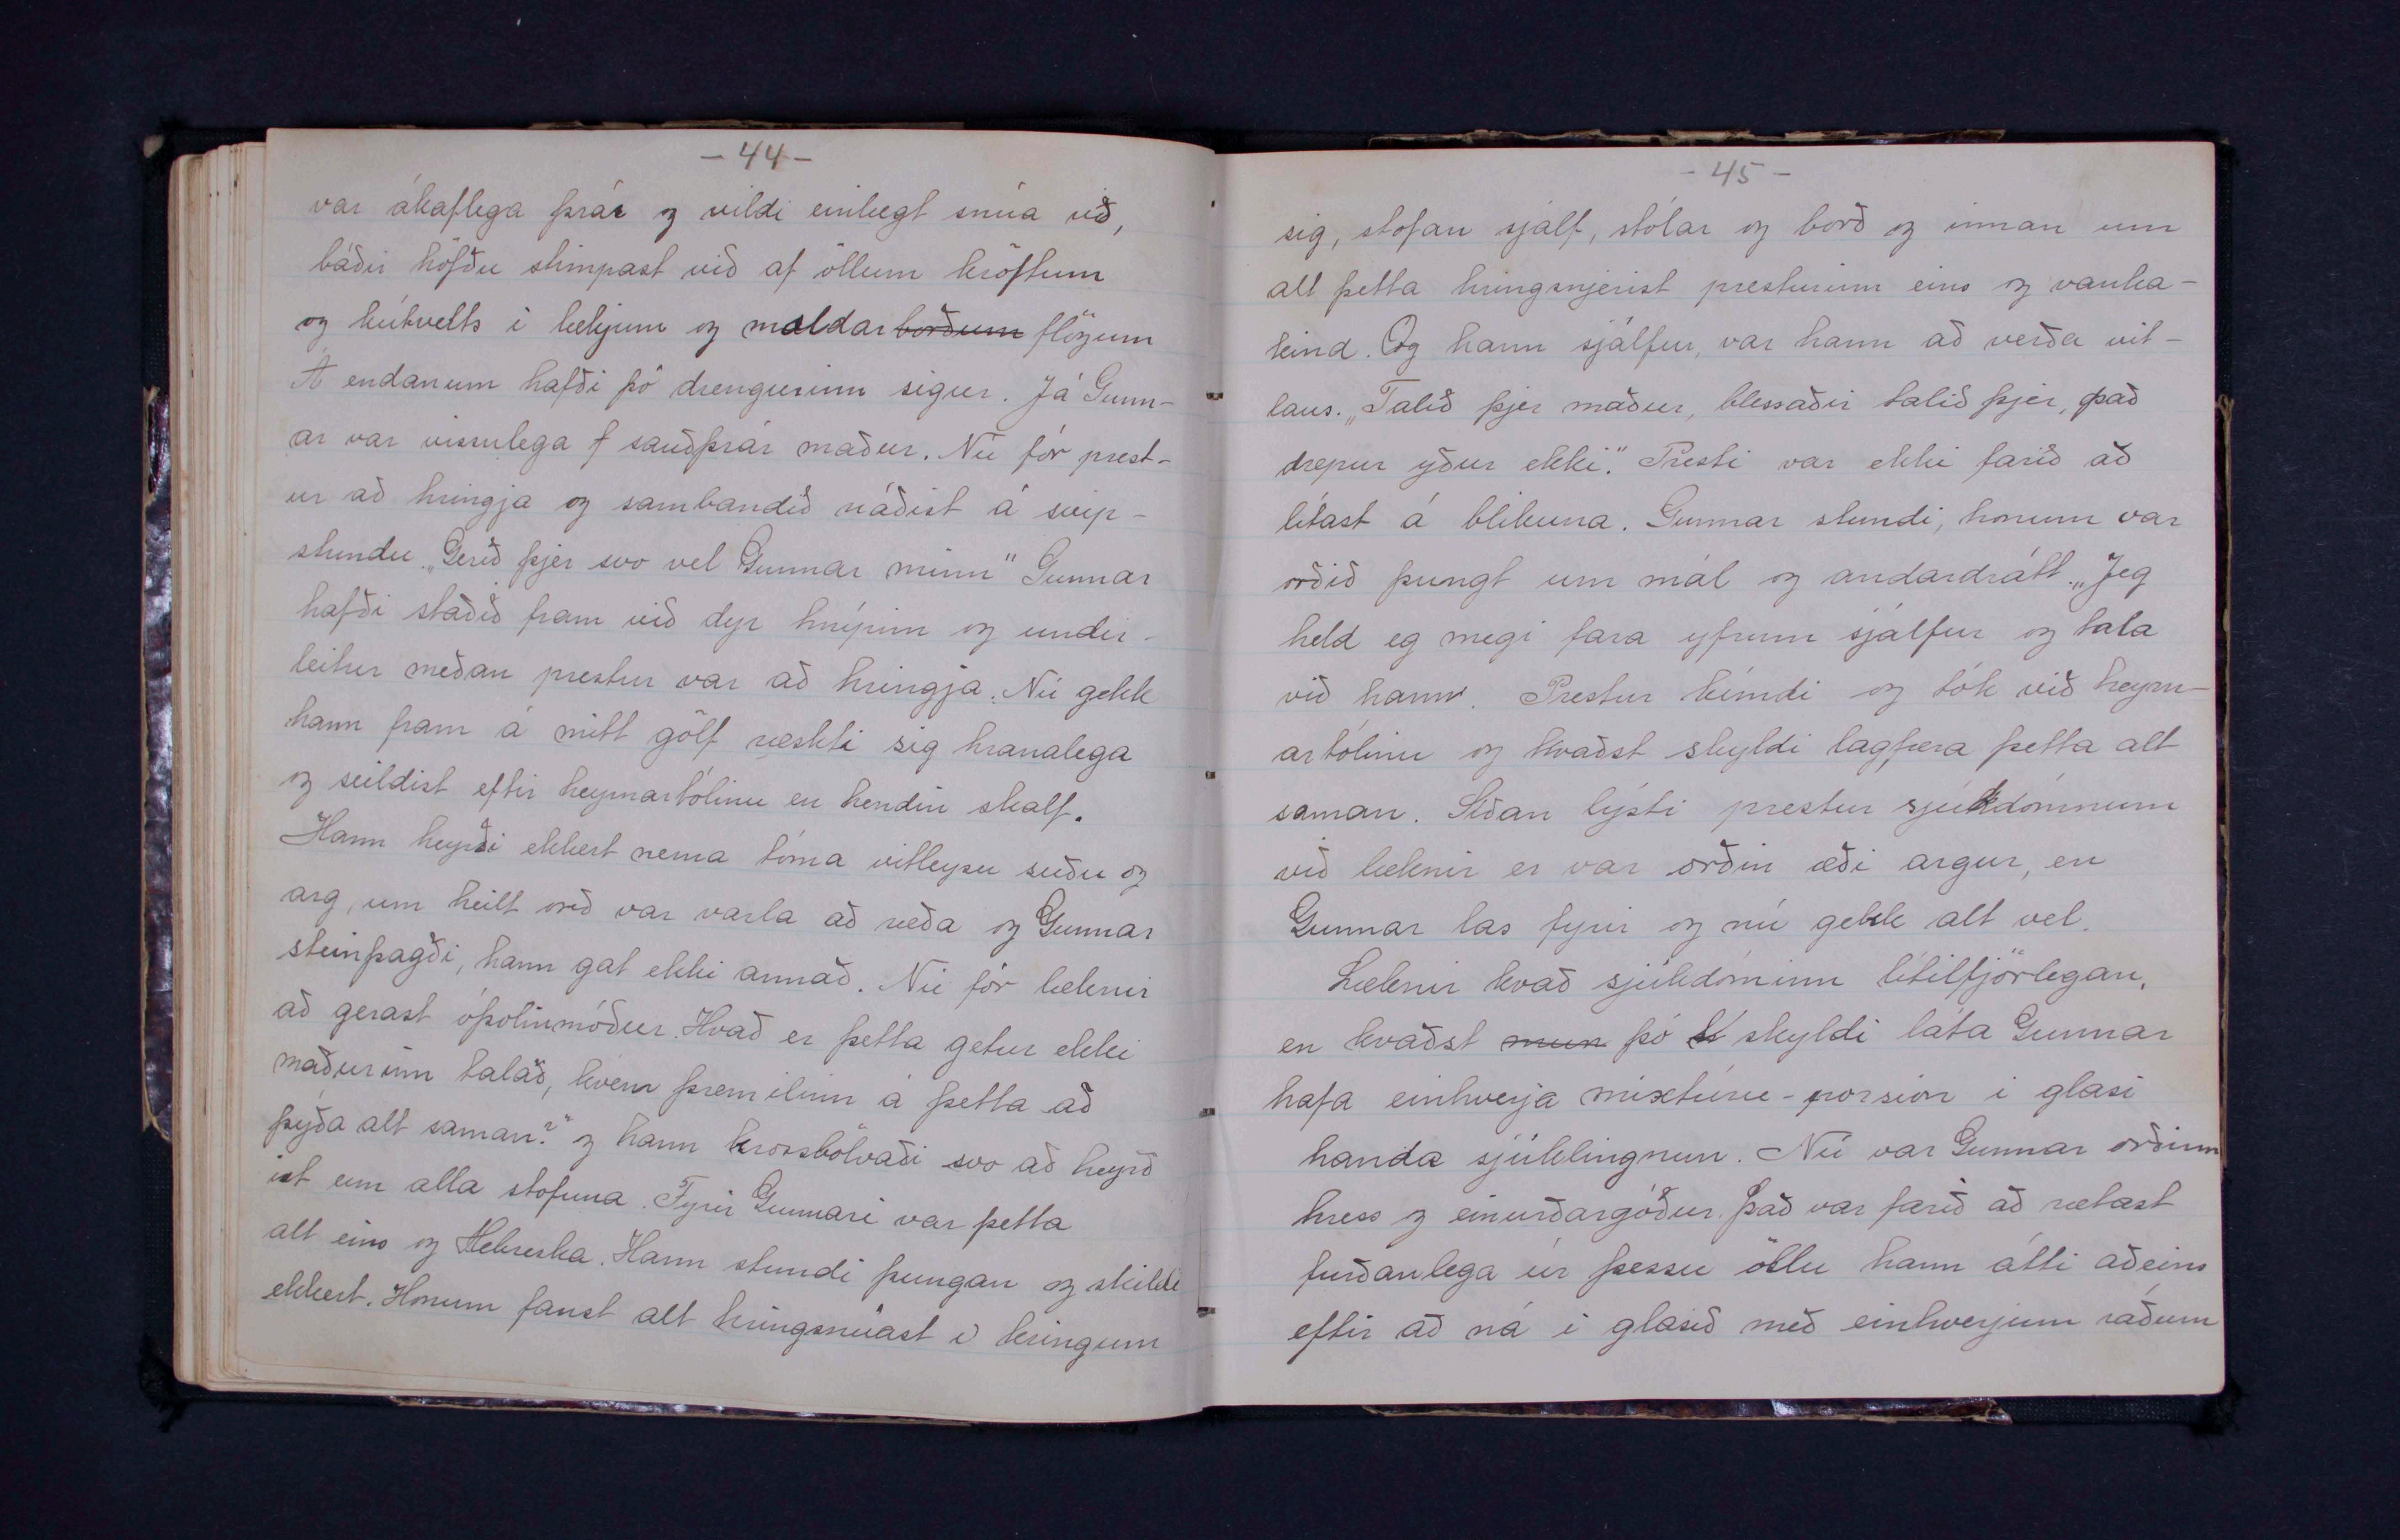 - 44 -
var ákaflega þrár og vildi einlægt snúa við,
báðir höfðu stimpast við af öllum kröftum
og kútvelts i lækjum og moldar borðum flögum
Á endanum hafði þó drengurinn sigur. Já Gunn-
ar var vissulega f sauðþrár maður. Nú fór prest-
ur að hringja og sambandið náðist á svip-
stundu. „Gerið þjer svo vel Gunnar minn" Gunnar
hafði staðið fram við dyr hnýpinn og undir-
leitur meðan prestur var að hringja. Nú gekk
hann fram á mitt gólf ræskti sig hranalega
og seildist eftir heyrnartólinu en hendin skalf.
Hann heyrði ekkert nema tóma vitleysu suðu og
arg, um heilt orð var varla að ræða og Gunnar
steinþagði, hann gat ekki annað. Nú fór læknir
að gerast óþolinmóður. Hvað er þetta getur ekki
maðurinn talað, hvern þremilinn á þetta að
þýða alt saman?" og hann krossbölvaði svo að heyrð
ist um alla stofuna. Fyrir Gunnari var þetta
alt eins og Hebreska. Hann stundi þungan og skildi
ekkert. Honum fanst alt hringsnúast í kringum
- 45 -
sig, stofan sjálf, stólar og borð og innan um
alt þetta hringsnjerist presturinn eins og vanka-
kind. Og hann sjálfur, var hann að verða vit-
laus. „Talið þjer maður, blessaðir talið þjer, það
drepur yður ekki." Presti var ekki farið að
lítast á blikuna. Gunnar stundi, honum var
orðið þungt um mál og andardrátt. „Jeg
held eg megi fara yfrum sjálfur og tala
við hann. Prestur kímdi og tók við heyrn-
artólinu og kvaðst skyldi lagfæra þetta alt
saman. Síðan lýsti prestur sjúkdómnum
við læknir er var orðin æði argur, en
Gunnar las fyrir og nú gekk alt vel.
Læknir kvað sjúkdóminn lítilfjörlegan,
en kvaðst mun þó skyldi láta Gunnar
hafa einhverja mixtúru-porsion i glasi
handa sjúklingnum. Nú var Gunnar orðinn
hress og einurðargóður. Það var farið að rætast
furðanlega úr þessu öllu hann átti aðeins
eftir að ná i glasið með einhverjum ráðum